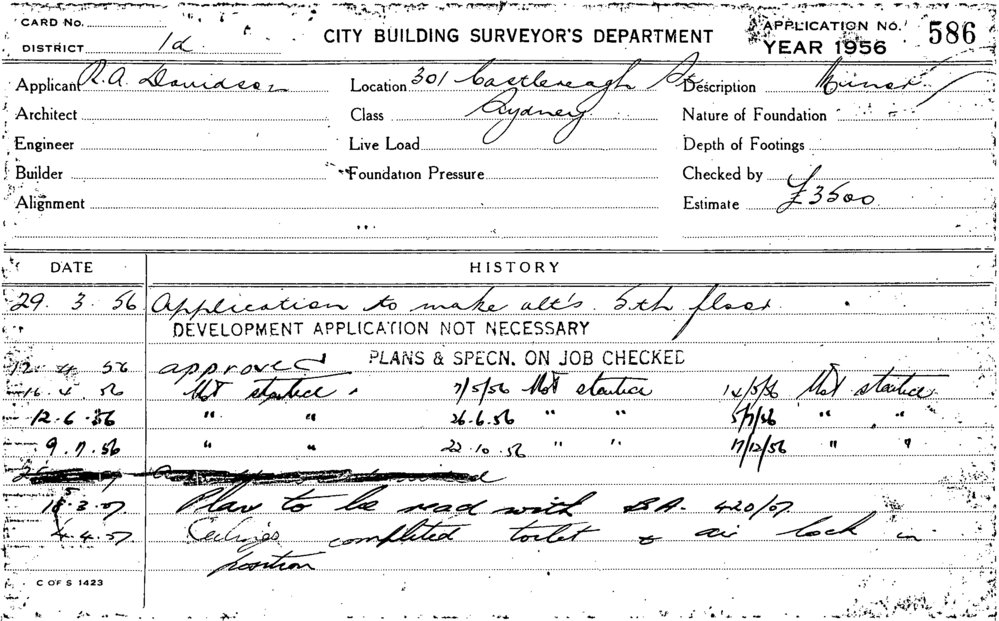 CARD No.
DISTRICT 1d
CITY BUILDING SURVEYOR'S DEPARTMENT
APPLICATION No. 586
YEAR 1956
Applicant R.A. Davidson Location 301 Castlereagh St Description Minor
Architect Class Sydney Nature of Foundation
Engineer Live Load Depth of Footings
Builder Foundation Pressure Checked by
Alignment Estimate £3500
DATE HISTORY
29. 3. 56 Application to make alt's. 5th floor.
DEVELOPMENT APPLICATION NOT NECESSARY
PLANS & SPECN. ON JOB CHECKED
12. 4. 56 approved
16. 4. 56 Not started. 7/5/56 Not started 14/5/56 Not started.
12. 6. 56 " " 26.6.56 " " 5/7/56 " "
9. 7. 56 " " 22.10.56 " " 17/12/56 " "
15. 3. 57 Plan to be read with B.A. 420/57
4. 4. 57 Ceilings completed toilet & air lock in
position
C OF S 1423